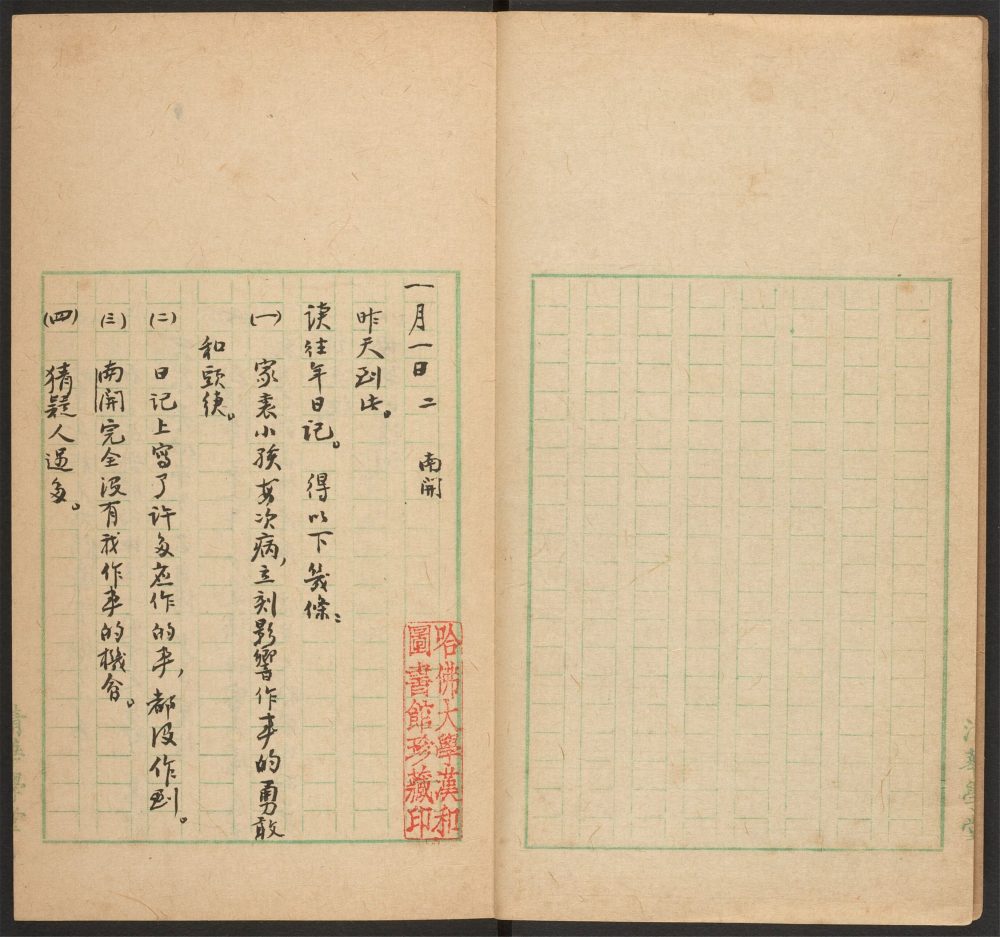 一月一日 二 南開
昨天到此。
读往年日记。得以下幾條：
（一）家裏小孩每次病，立刻影響作事的勇敢
和興緻。
（二）日记上寫了许多应作的事，都没作到。
（三）南開完全没有我作事的機會。
（四）猜疑人过多。
哈佛大學漢和
圖書館珍藏印
清華學堂